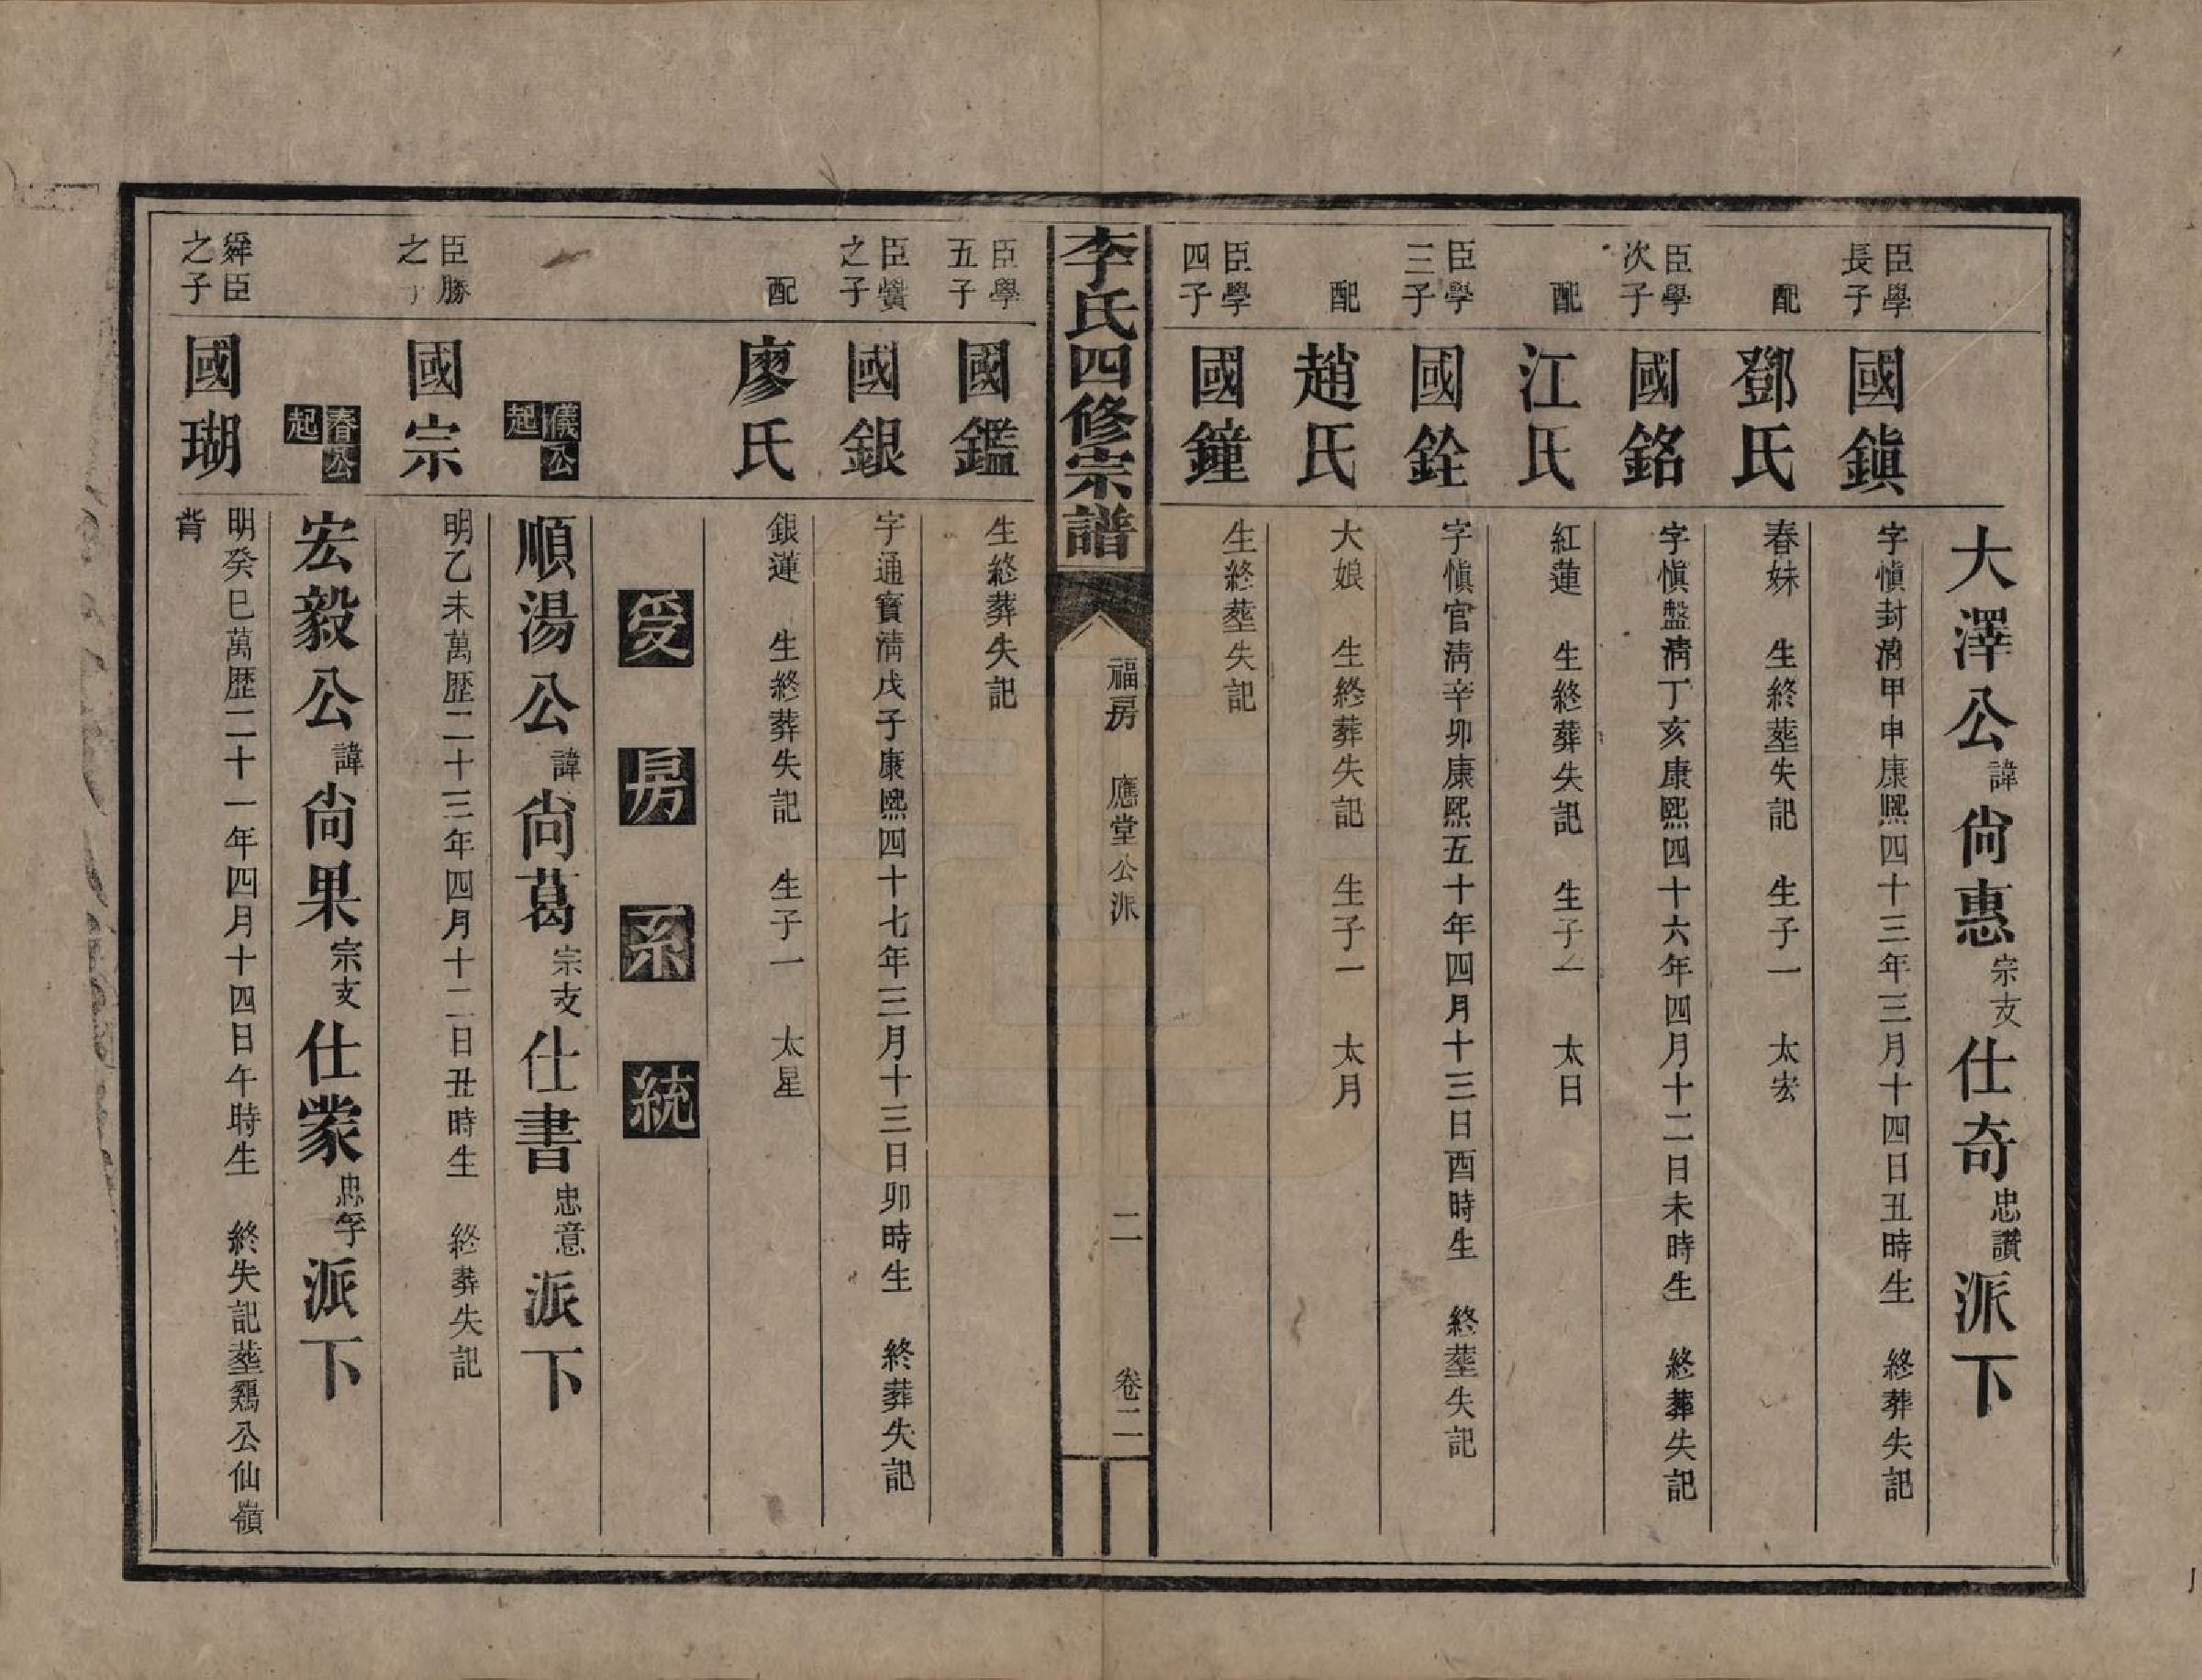 大澤公諱尙惠宗支仕奇忠讚派下
臣學長子 國鎭 字愼封淸甲申康熙四十三年三月十四日丑時生 終葬失記
配 鄧氏 春妹 生終塟失記 生子一 太宏
臣學次子 國銘 字愼盤淸丁亥康熙四十六年四月十二日未時生 終葬失記
配 江氏 紅蓮 生終葬失記 生子一 太日
臣學三子 國銓 字愼官淸辛卯康熙五十年四月十三日酉時生 終塟失記
配 趙氏 大娘 生終葬失記 生子一 太月
臣學四子 國鐘 生終塟失記
李氏四修宗譜 福房 應堂公派 二 卷二
臣學五子 國鑑 生終葬失記
臣黌之子 國銀 字通寳淸戊子康熙四十七年三月十三日卯時生 終葬失記
配 廖氏 銀蓮 生終葬失記 生子一 太星
爰房系統
儀公起 順湯公諱尙葛宗支仕書忠意派下
臣勝之子 國宗 明乙未萬歷二十三年四月十二日丑時生 終葬失記
春公起 宏毅公諱尙果宗支仕蒙忠孚派下
舜臣之子 國瑚 明癸巳萬歷二十一年四月十四日午時生 終失記塟鷄公仙嶺
背